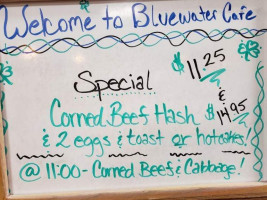 Welcome to Bluewater Cafe
Special $11.25
&
Corned Beef Hash $14.95
& 2 eggs & toast or hotcakes!
@ 11:00 - Corned Beef & Cabbage!